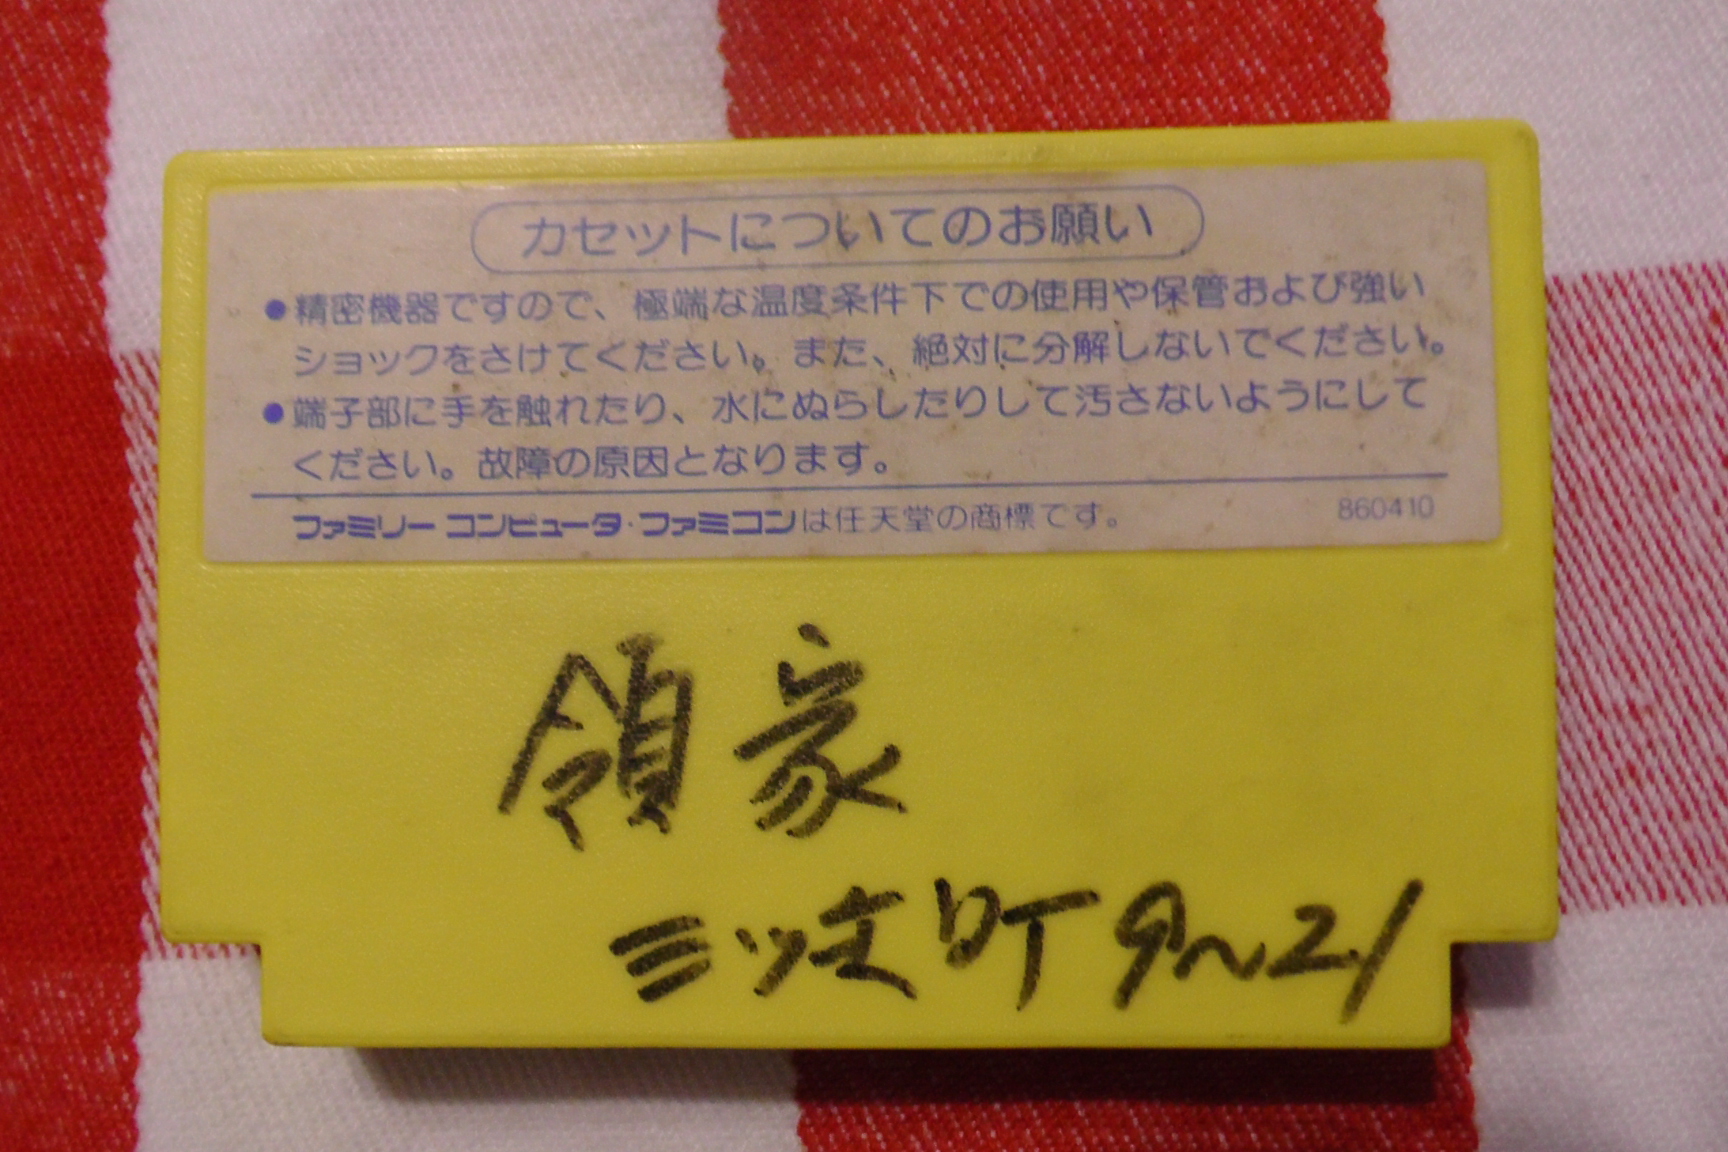 カセットについてのお願い
●精密機器ですので、極端な温度条件下での使用や保管および強い
ショックをさけてください。また、絶対に分解しないでください。
●端子部に手を触れたり、水にぬらしたりして汚さないようにして
ください。故障の原因となります。
ファミリーコンピュータ・ファミコンは任天堂の商標です。
860410
領家
三ツ丈町9~21